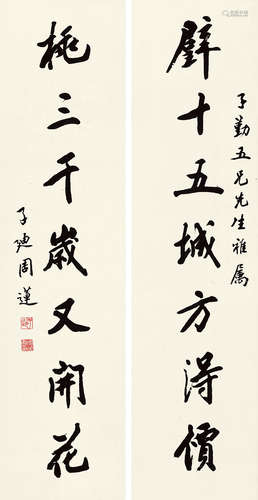 子勤五兄先生雅属
璧十五城方得價
桃三千歲又開花
子迪周蓮